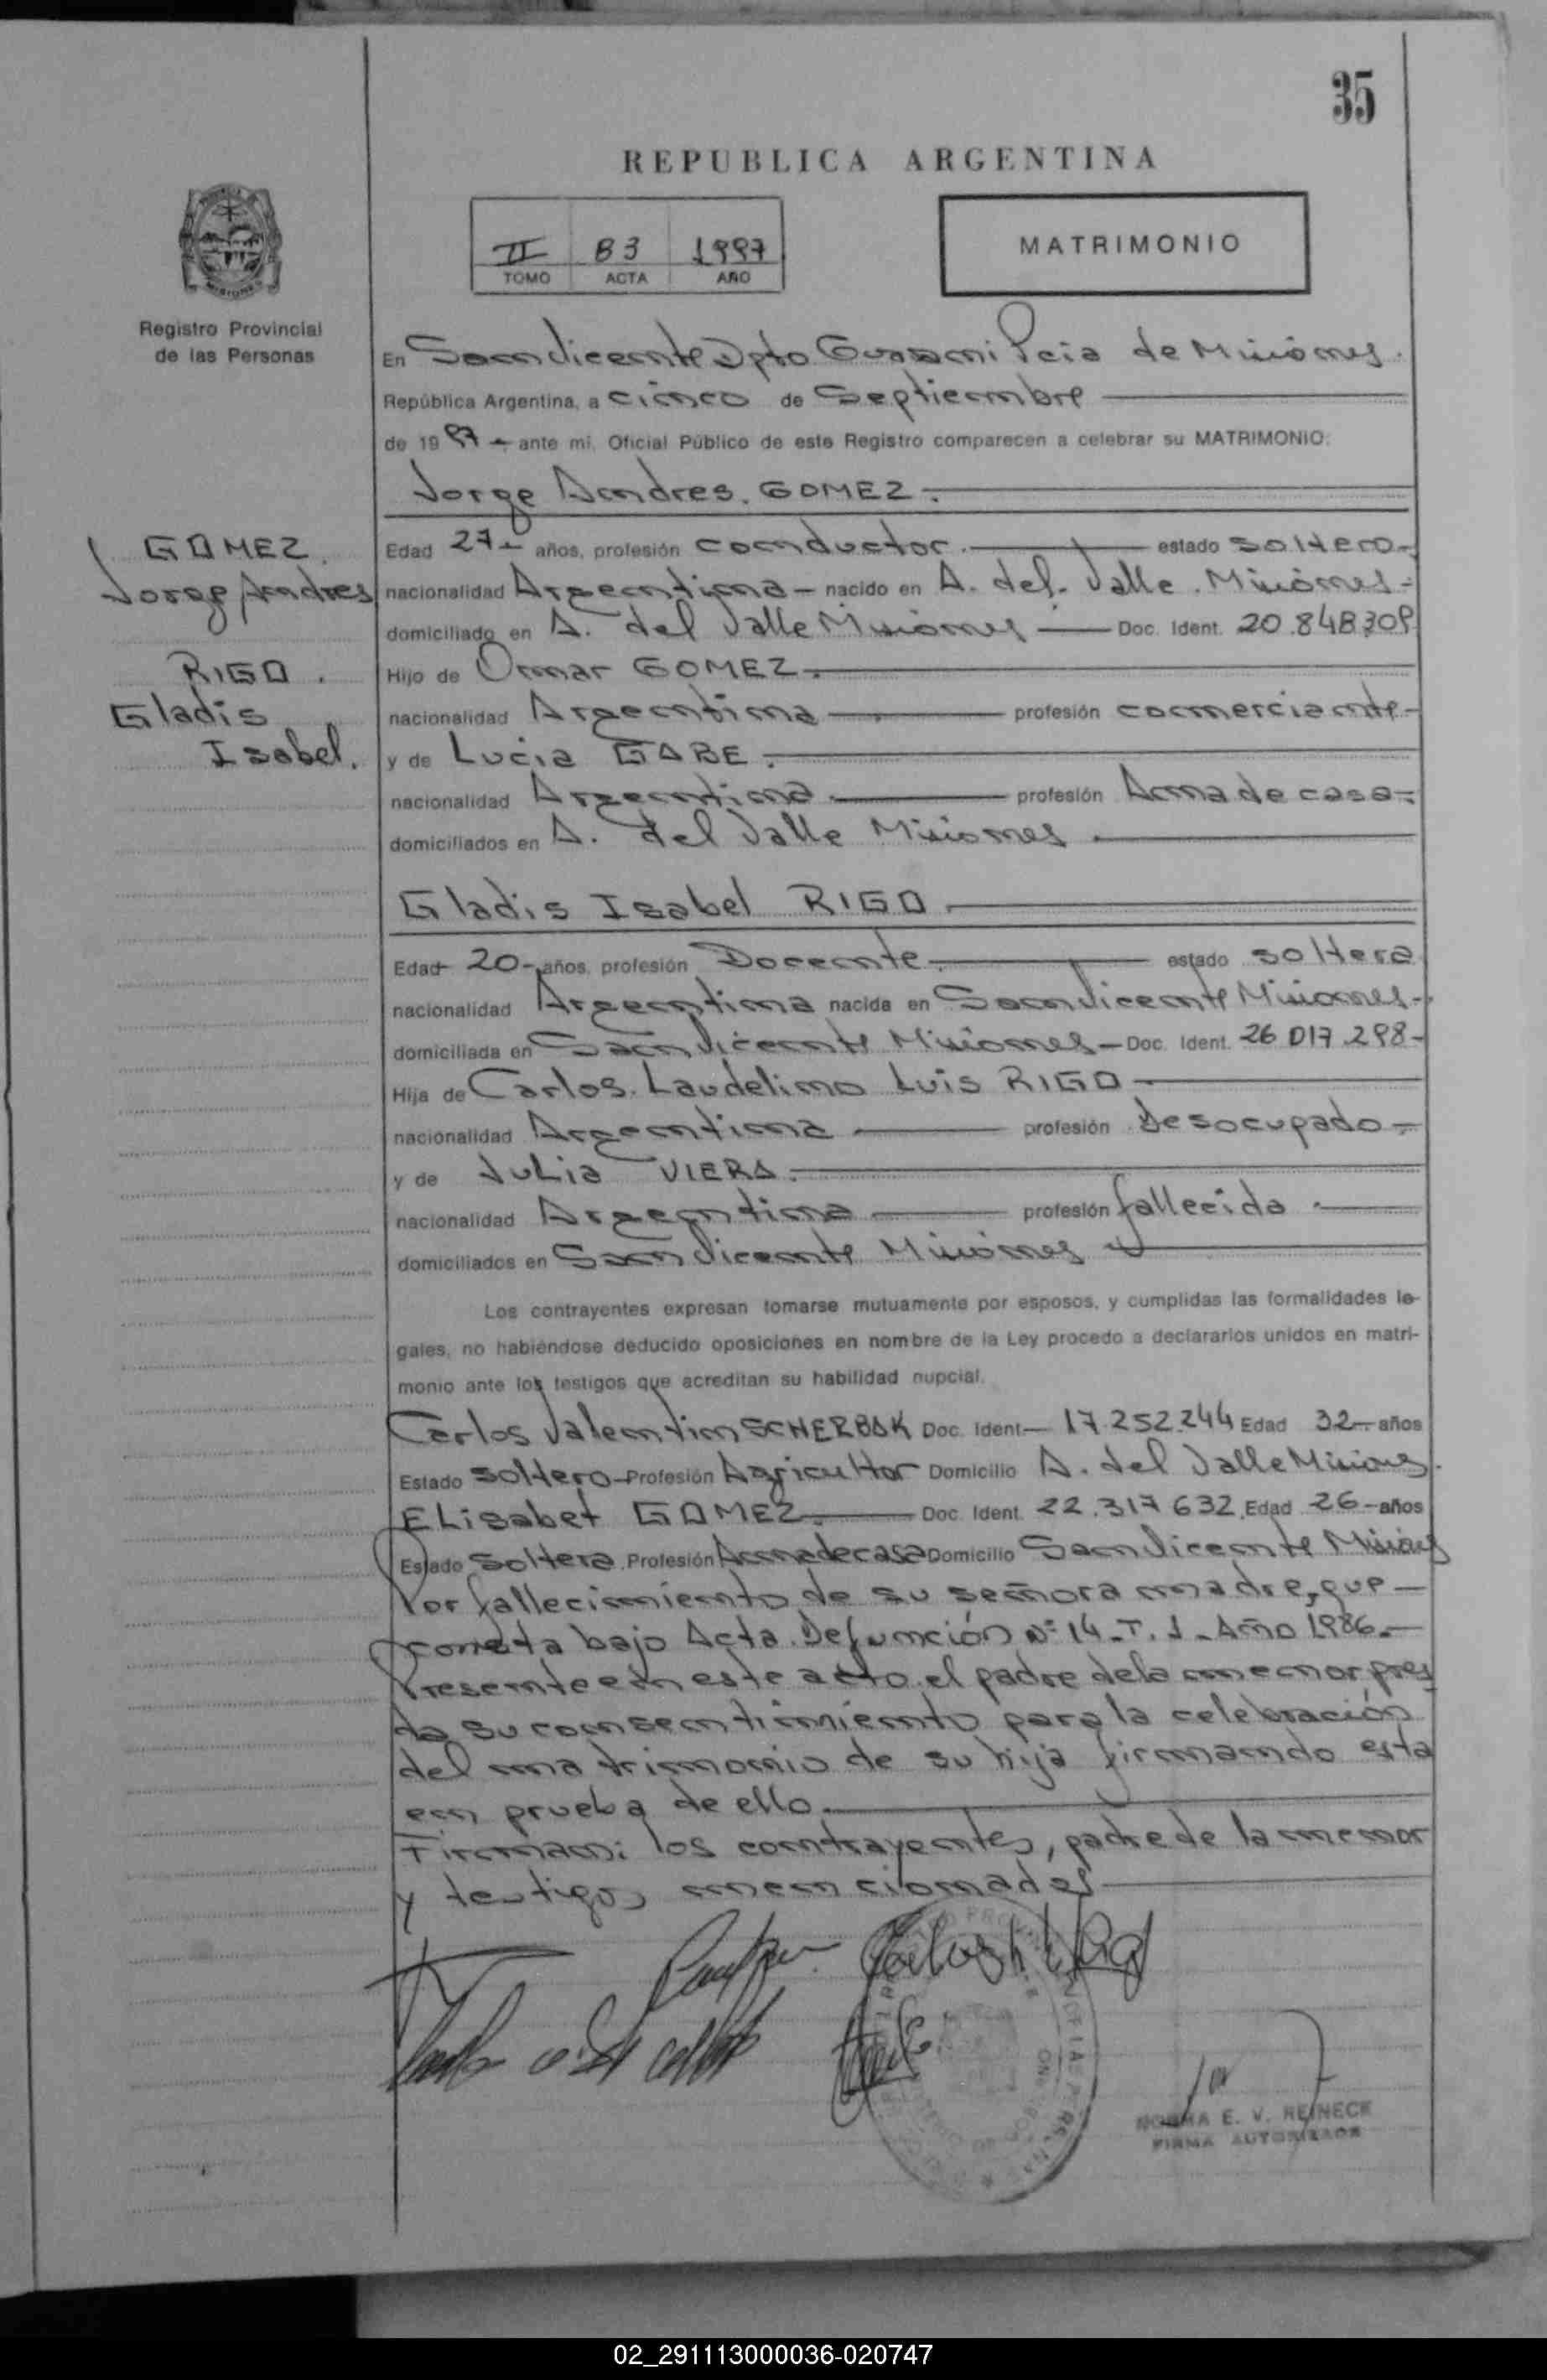 35
REPUBLICA ARGENTINA
II 83 1997
TOMO ACTA AÑO
MATRIMONIO
Registro Provincial
de las Personas
En San Vicente Dpto Guarani Pcia de Misiones.
República Argentina, a cinco de Septiembre
de 19 97 - ante mi, Oficial Público de este Registro comparecen a celebrar su MATRIMONIO:
Jorge Andres. GOMEZ.
GOMEZ
Jorge Andres
RIGO.
Gladis
Isabel.
Edad 27- años, profesión conductor. estado soltero-
nacionalidad Argentina - nacido en A. del Valle. Misiones-
domiciliado en A. del Valle Misiones - Doc. Ident. 20.848.309
Hijo de Omar GOMEZ.
nacionalidad Argentina profesión comerciante-
y de Lucia GABE.
nacionalidad Argentina profesión Ama de casa-
domiciliados en A. del Valle Misiones
Gladis Isabel RIGO.
Edad 20- años, profesión Docente. estado soltera
nacionalidad Argentina nacida en San Vicente Misiones-
domiciliada en San Vicente Misiones - Doc. Ident. 26 017.298-
Hija de Carlos. Laudelino Luis RIGO
nacionalidad Argentina profesión Desocupado-
y de Julia VIERA.
nacionalidad Argentina profesión fallecida
domiciliados en San Vicente Misiones
Los contrayentes expresan tomarse mutuamente por esposos, y cumplidas las formalidades le-
gales, no habiéndose deducido oposiciones en nombre de la Ley procedo a declararlos unidos en matri-
monio ante los testigos que acreditan su habilidad nupcial.
Carlos Valentin SCHERBAK Doc. Ident- 17.252.244 Edad 32- años
Estado soltero - Profesión Agricultor Domicilio A. del Valle Misiones.
Elisabet GOMEZ. Doc. Ident. 22.317 632. Edad 26- años
Estado Soltera. Profesión Ama de casa Domicilio San Vicente Misiones
Por fallecimiento de su señora madre, que-
consta bajo Acta. Defunción Nº 14_T. 1_ Año 1986.-
Presente en este acto. el padre de la menor, pres
ta su consentimiento para la celebración
del matrimonio de su hija firmando esta
en prueba de ello.
Firman: los contrayentes, padre de la menor
y testigos mencionados
NORMA E. V. REINECK
FIRMA AUTORIZADA
02_291113000036-020747